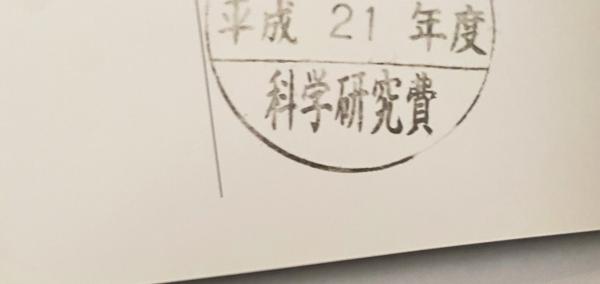 平成 21 年度
科学研究費